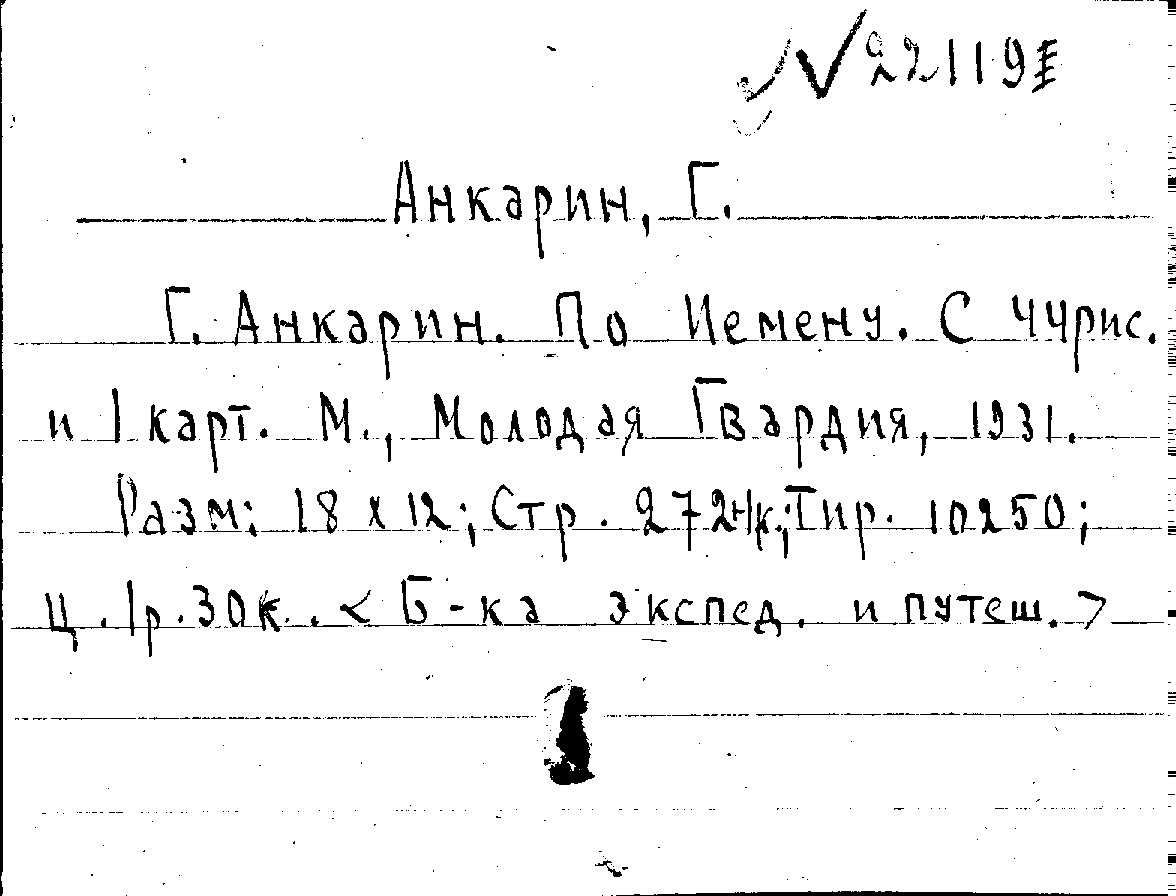 № 22119
Анкарин, Г.
Г. Анкарин. По Иемену. С 44 рис.
и 1 карт. М., Молодая Гвардия, 1931.
Разм: 18 х 12; Стр. 272+1к.; Тир. 10250;
Ц. 1р. 30к. < Б-ка экспед. и путеш. >